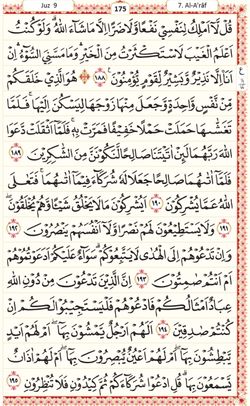 Juz 9
175
7. Al-A'rāf
قُلْ لَّآ اَمْلِكُ لِنَفْسِيْ نَفْعًا وَّلَا ضَرًّا اِلَّا مَا شَآءَ اللّٰهُ ۗوَلَوْ كُنْتُ
اَعْلَمُ الْغَيْبَ لَاسْتَكْثَرْتُ مِنَ الْخَيْرِۛ وَمَا مَسَّنِيَ السُّوْۤءُ ۛاِنْ
اَنَا۠ اِلَّا نَذِيْرٌ وَّبَشِيْرٌ لِّقَوْمٍ يُّؤْمِنُوْنَ ١٨٨ هُوَ الَّذِيْ خَلَقَكُمْ
مِّنْ نَّفْسٍ وَّاحِدَةٍ وَّجَعَلَ مِنْهَا زَوْجَهَا لِيَسْكُنَ اِلَيْهَاۚ فَلَمَّا
تَغَشّٰىهَا حَمَلَتْ حَمْلًا خَفِيْفًا فَمَرَّتْ بِهٖ ۚفَلَمَّآ اَثْقَلَتْ دَّعَوَا
اللّٰهَ رَبَّهُمَا لَىِٕنْ اٰتَيْتَنَا صَالِحًا لَّنَكُوْنَنَّ مِنَ الشّٰكِرِيْنَ ١٨٩
فَلَمَّآ اٰتٰىهُمَا صَالِحًا جَعَلَا لَهٗ شُرَكَآءَ فِيْمَآ اٰتٰىهُمَا ۚفَتَعٰلَى
اللّٰهُ عَمَّا يُشْرِكُوْنَ ١٩٠ اَيُشْرِكُوْنَ مَا لَا يَخْلُقُ شَيْـًٔا وَّهُمْ يُخْلَقُوْنَۖ
١٩١ وَلَا يَسْتَطِيْعُوْنَ لَهُمْ نَصْرًا وَّلَآ اَنْفُسَهُمْ يَنْصُرُوْنَ ١٩٢
وَاِنْ تَدْعُوْهُمْ اِلَى الْهُدٰى لَا يَتَّبِعُوْكُمْۗ سَوَآءٌ عَلَيْكُمْ اَدَعَوْتُمُوْهُمْ
اَمْ اَنْتُمْ صَامِتُوْنَ ١٩٣ اِنَّ الَّذِيْنَ تَدْعُوْنَ مِنْ دُوْنِ اللّٰهِ
عِبَادٌ اَمْثَالُكُمْ فَادْعُوْهُمْ فَلْيَسْتَجِيْبُوْا لَكُمْ اِنْ
كُنْتُمْ صٰدِقِيْنَ ١٩٤ اَلَهُمْ اَرْجُلٌ يَّمْشُوْنَ بِهَآ ۖ اَمْ لَهُمْ اَيْدٍ
يَّبْطِشُوْنَ بِهَآ ۖ اَمْ لَهُمْ اَعْيُنٌ يُّبْصِرُوْنَ بِهَآ ۖ اَمْ لَهُمْ اٰذَانٌ
يَّسْمَعُوْنَ بِهَاۗ قُلِ ادْعُوْا شُرَكَآءَكُمْ ثُمَّ كِيْدُوْنِ فَلَا تُنْظِرُوْنِ ١٩٥